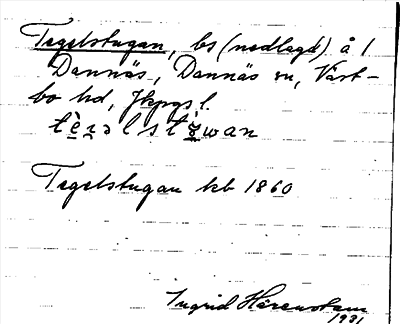 Tegelstugan, bs (nedlagd) å 1
Dannäs, Dannäs sn, Väst-
bo hd, Jkpgs l.
Tegelstugan kb 1860
Ingrid Härenstam
1931